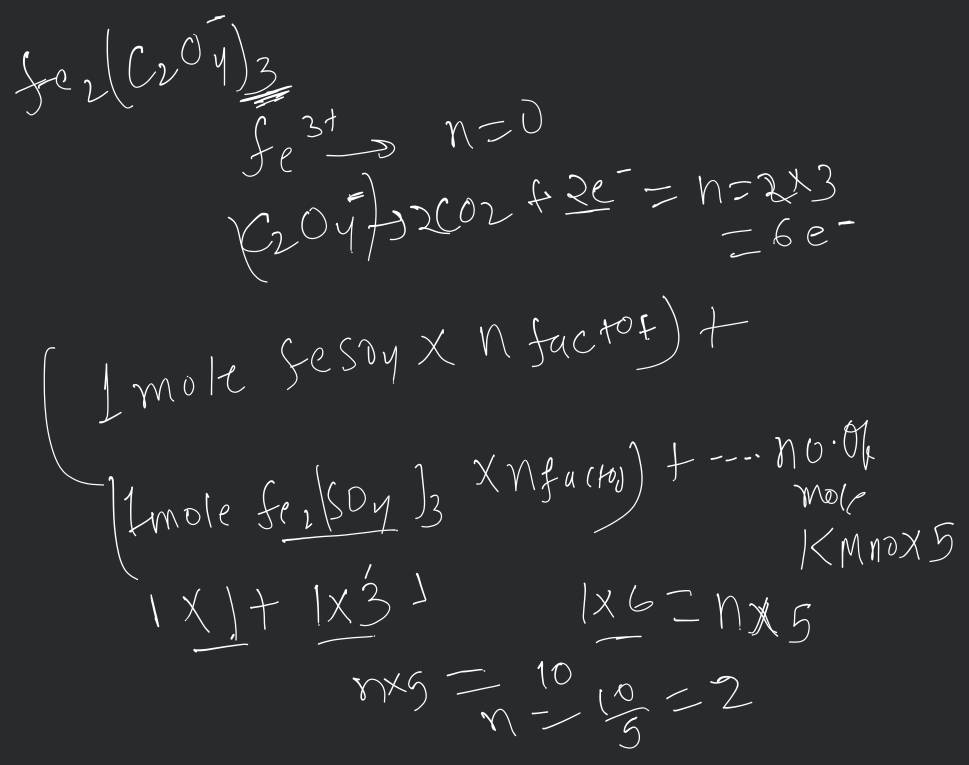 fe2(C2O4⁻)3
fe³⁺ → n=0
(C2O4⁼) → 2CO2 + 2e⁻ = n=2×3
= 6e⁻
(1 mole feso4 × n factor) +
(1mole fe2(SO4)3 × nfactor) + ---- no.of
mole
KMno×5
1×1 + 1×3 1×6 = n×5
n×5 = 10
n = 10/5 = 2